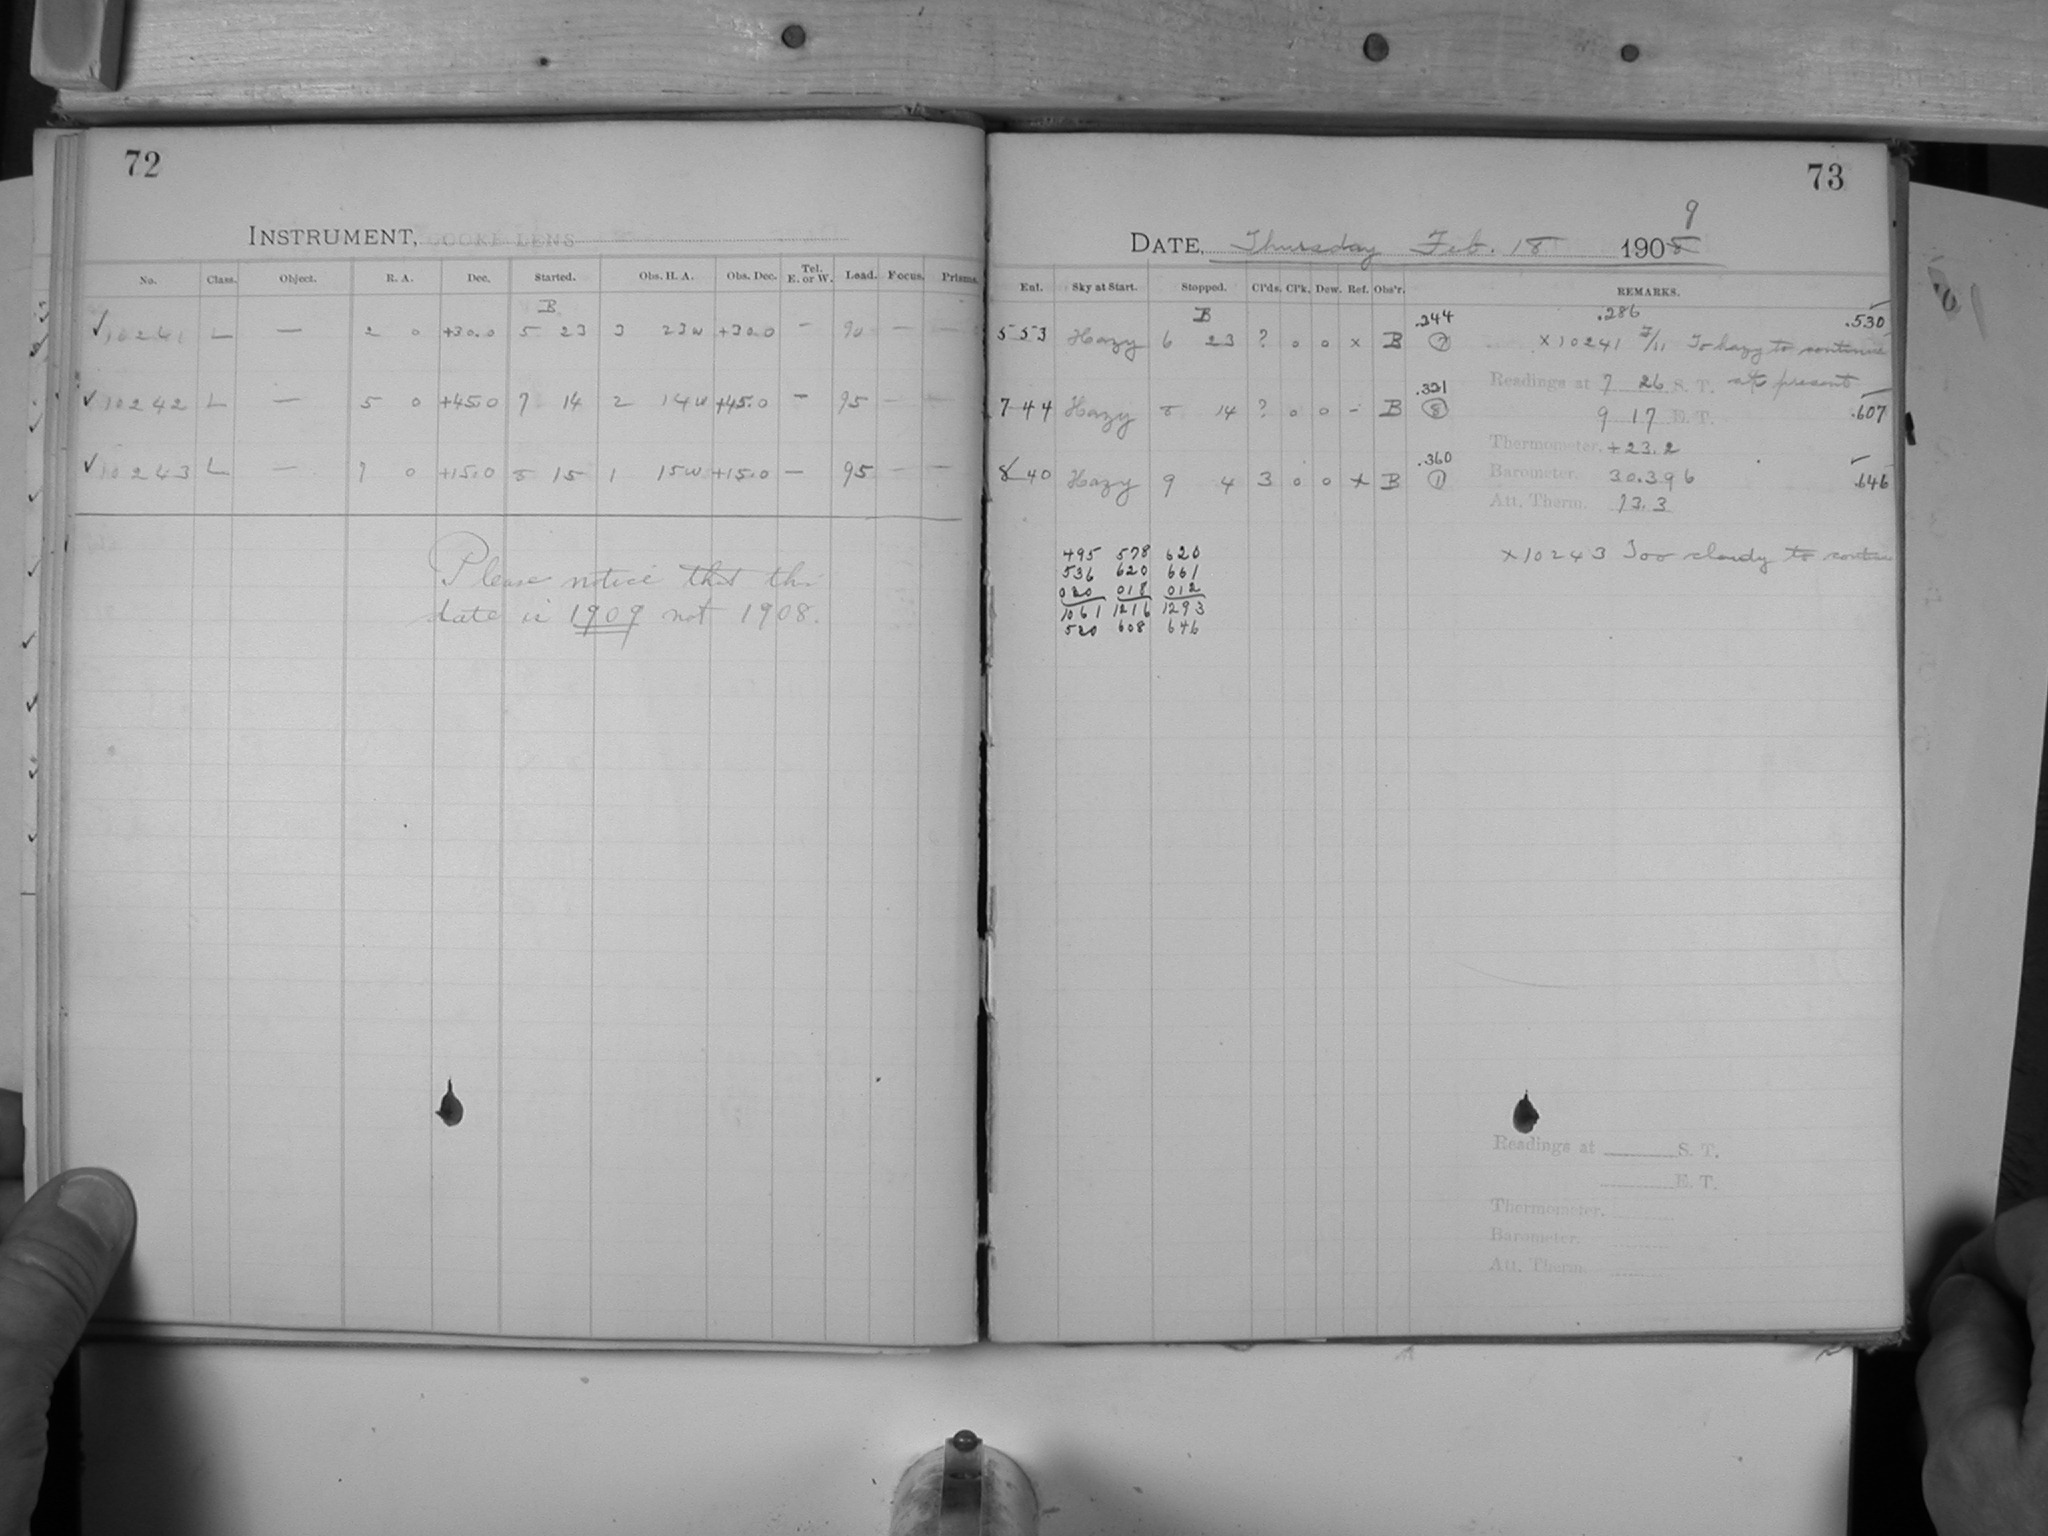 72
INSTRUMENT, COOKE LENS
No. Class. Object. R. A. Dec. Started. Obs. H. A. Obs. Dec. Tel. E. or W. Lead. Focus. Prisms.
B
✓10241 L — 2 0 +30.0 5 23 3 23w +30.0 — 90 — —
✓10242 L — 5 0 +45.0 7 14 2 14w +45.0 — 95 — —
✓10243 L — 7 0 +15.0 8 15 1 15w +15.0 — 95 — —
Please notice that the
date is 1909 not 1908.
73
9
DATE, Thursday Feb. 18 1908
Ent. Sky at Start. Stopped. Cl'ds. Cl'k. Dew. Ref. Obs'r. REMARKS.
B .244 .286 .530
5 53 Hazy 6 23 ? 0 0 x B 7 x10241 To hazy to continue
Readings at 7 26 S. T. at present
.321
7 44 Hazy 8 14 ? 0 0 - B 8 9 17 E. T. .607
Thermometer. +23.2
.360
8 40 Hazy 9 4 3 0 0 x B 1 Barometer. 30.396 .646
Att. Therm. 73.3
x10243 Too cloudy to
495 578 620
536 620 661
020 018 012
1061 1216 1293
520 608 646
Readings at S. T.
E. T.
Thermometer.
Barometer.
Att. Therm.